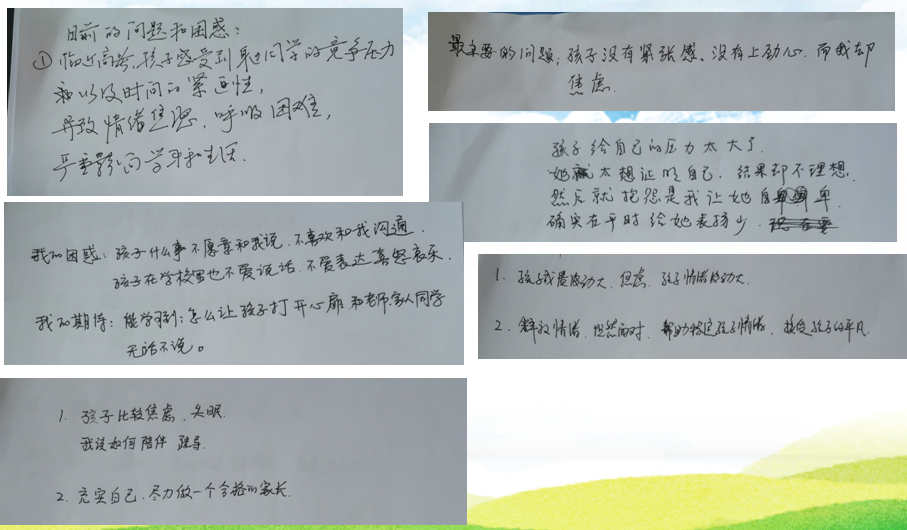 目前的问题和困惑：
① 临近高考，孩子感受到来自同学的竞争压力
和以及时间的紧迫性，
导致情绪焦虑，呼吸困难，
严重影响学习和生活.
最主要的问题：孩子没有紧张感、没有上劲心. 而我却
焦虑.
孩子给自己的压力太大了.
她太想证明自己，结果却不理想.
然后就抱怨是我让她自卑.
确实在平时给她表扬少.
我的困惑：孩子什么事不愿意和我说，不喜欢和我沟通.
孩子在学校里也不爱说话，不爱表达喜怒哀乐.
我的期待：能学到：怎么让孩子打开心扉，和老师家人同学
无话不说。
1. 孩子成绩波动大，焦虑，孩子情绪波动大.
2. 释放情绪，坦然面对，帮助孩子情绪，接受孩子的平凡.
1. 孩子比较焦虑、失眠.
我该如何陪伴 疏导.
2. 充实自己，尽力做一个合格的家长.